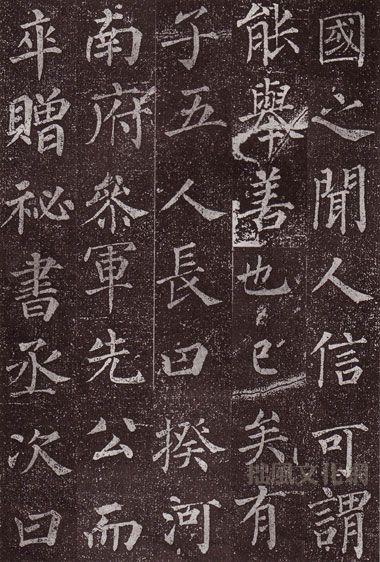 國之聞人信可謂
能舉善也已矣有
子五人長曰揆河
南府參軍先公而
卒贈祕書丞次曰
拙風文化網